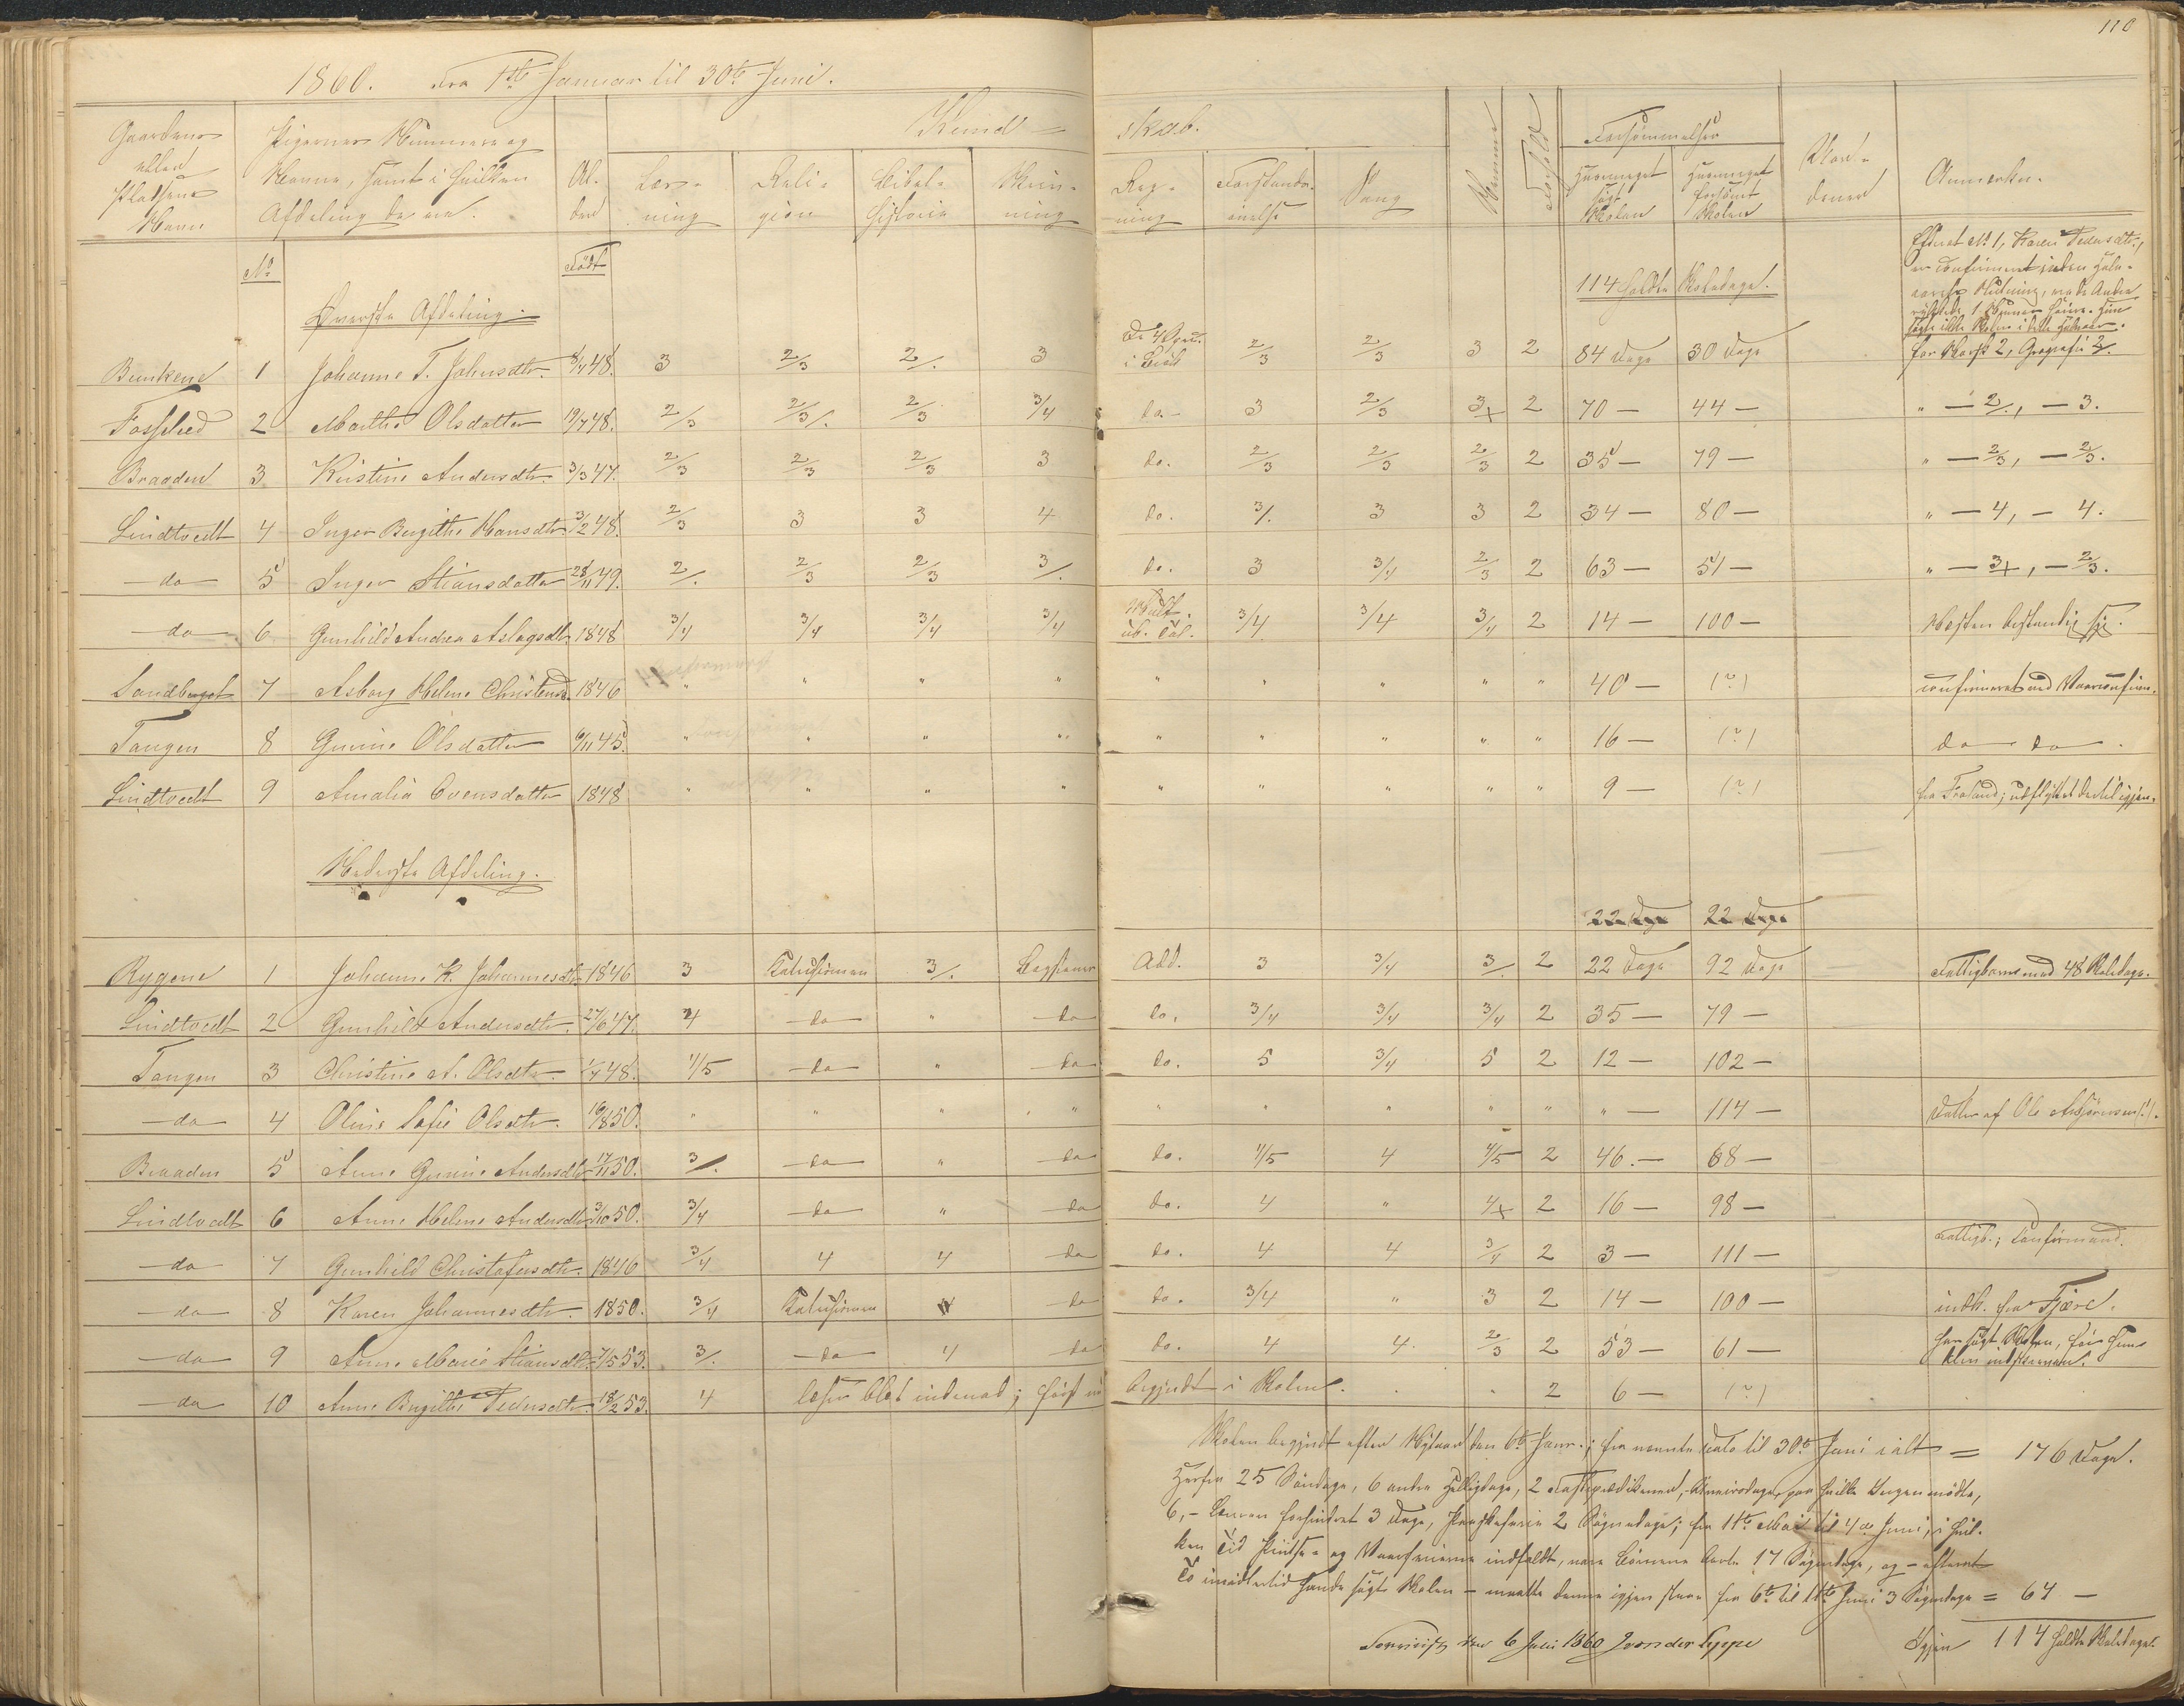 110
1860. Fra 1ste Januar til 30te Juni.
Kund-
skab.
Gaardens eller Pladsens Navn
Pigernes Nummere og Navne, samt i hvilken Afdeling de ere.
Alder
Læsning
Religion
Bibelhistorie
Skrivning
Regning
Forstandsøvelse
Sang
Nemme
Forhold
Forsømmelser
hvormeget søgt Skolen
hvormeget forsømt Skolen
Anmærkn.
No
Født
114 holdte Skoledage.
Øverste Afdeling.
Bunkene 1 Johanne T. Johnsdtr. 8/4 48. 3 2/3 2/. 3 De 4 Spec. i Brøk 2/3 2/3 3 2 84 Dage 30 Dage for Norsk 2, Geografi 2/3.
Fosselied 2 Marthe Olsdatter 19/7 48. 2/3 2/3/. 2/3 3/4 do. 3 2/3 3+ 2 70 — 44 — " — 2/., — 3.
Braaden 3 Kristine Andersdtr. 3/3 47. 2/3 2/3 2/3 3 do. 2/3 2/3 2/3 2 35 — 79 — " — 2/3, — 2/3.
Lindtvedt 4 Inger Birgithe Hansdtr. 3/2 48. 2/3 3 3 4 do. 3/. 3 3 2 34 — 80 — " — 4, — 4.
— do — 5 Inger Stiansdatter 28/11 49. 2/. 2/3 2/3 3/. do. 3 3/4 2/3 2 63 — 51 — " — 3+, — 2/3.
— do — 6 Gunhild Andrea Aslagsdtr. 1848 3/4 3/4 3/4 3/4 Mult. ub. Tal. 3/4 3/4 3/4 2 14 — 100 — Næsten bestandig syg.
Sandberget 7 Asborg Helene Christensd. 1846 " " " " " " " " " 40 — (?) confirmeret ved Vaarconfirm.
Tangen 8 Gunine Olsdatter 6/11 45. " " " " " " " " " 16 — (?) do — do —.
Lindtvedt 9 Amalia Evensdatter 1848 " " " " " " " " " 9 — (?) fra Froland; udflyttet dertil igjen.
Nederste Afdeling.
22 Dage 22 Dage
Rygene 1 Johanne K. Johannesdtr. 1846 3 Katechismen 3/. Bogstaver Add. 3 3/4 3/. 2 22 Dage 92 Dage Fattigbarn med 48 Skoledage.
Lindtvedt 2 Gunhild Andersdtr. 27/6 47. 4 — do — " — do — do. 3/4 3/4 3/4 2 35 — 79 —
Tangen 3 Christine A. Olsdtr. 1/4 48. 4/5 — do — " — do — do. 5 3/4 5 2 12 — 102 —
— do — 4 Oline Sofie Olsdtr. 16/8 50. " " " " " " " " " " — 114 — Datter af Ole Asbjørnsen (!).
Braaden 5 Anne Gunine Andersdtr. 17/11 50. 3/. — do — " — do — do. 4/5 4 4/5 2 46. — 68 —
Lindtvedt 6 Anne Helene Andersdtr. 3/10 50. 3/4 — do — " — do — do. 4 " 4+ 2 16 — 98 —
— do — 7 Gunhild Christofersdtr. 1846 3/4 4 4 — do — do. 4 4 3/4 2 3 — 111 — Fattigb.; Confirmand.
— do — 8 Karen Johannesdtr. 1850. 3/4 Katechismen 4 — do — do. 3/4 " 3 2 14 — 100 — indk. fra Fjære.
— do — 9 Anne Marie Stiansdtr. 7/5 53. 3/. — do — 4 — do — do. 4 4 2/3 2 53 — 61 — har søgt Skolen, før hun blev indskreven.
— do — 10 Anne Birgithe Pedersdtr. 18/2 53. 4 læser blot indenad; først nu begyndt i Skolen. 2 6 — (?)
Skolen begyndt efter Nytaar den 6te Janr.; fra nevnte Dato til 30te Juni i alt = 176 Dage.
Herfra 25 Søndage, 6 andre Helligdage, 2 Fasteprædikener, paa hvilke Ingen mødte,
6, — Læreren forhindret 3 Dage, Paaskeferie 2 Søgnedage; fra 11te Mai til 4de Juni, i hvil-
ken Tid Pintse- og Vaarferierne indfaldt, vare Børnene borte 17 Søgnedage, og — efterat
To imidlertid havde søgt Skolen — maatte denne igjen staae fra 6te til 11te Juni 3 Søgnedage = 62 —
Igjen 114 holdte Skoledage.
den 6 Juli 1860 J von der Lippe